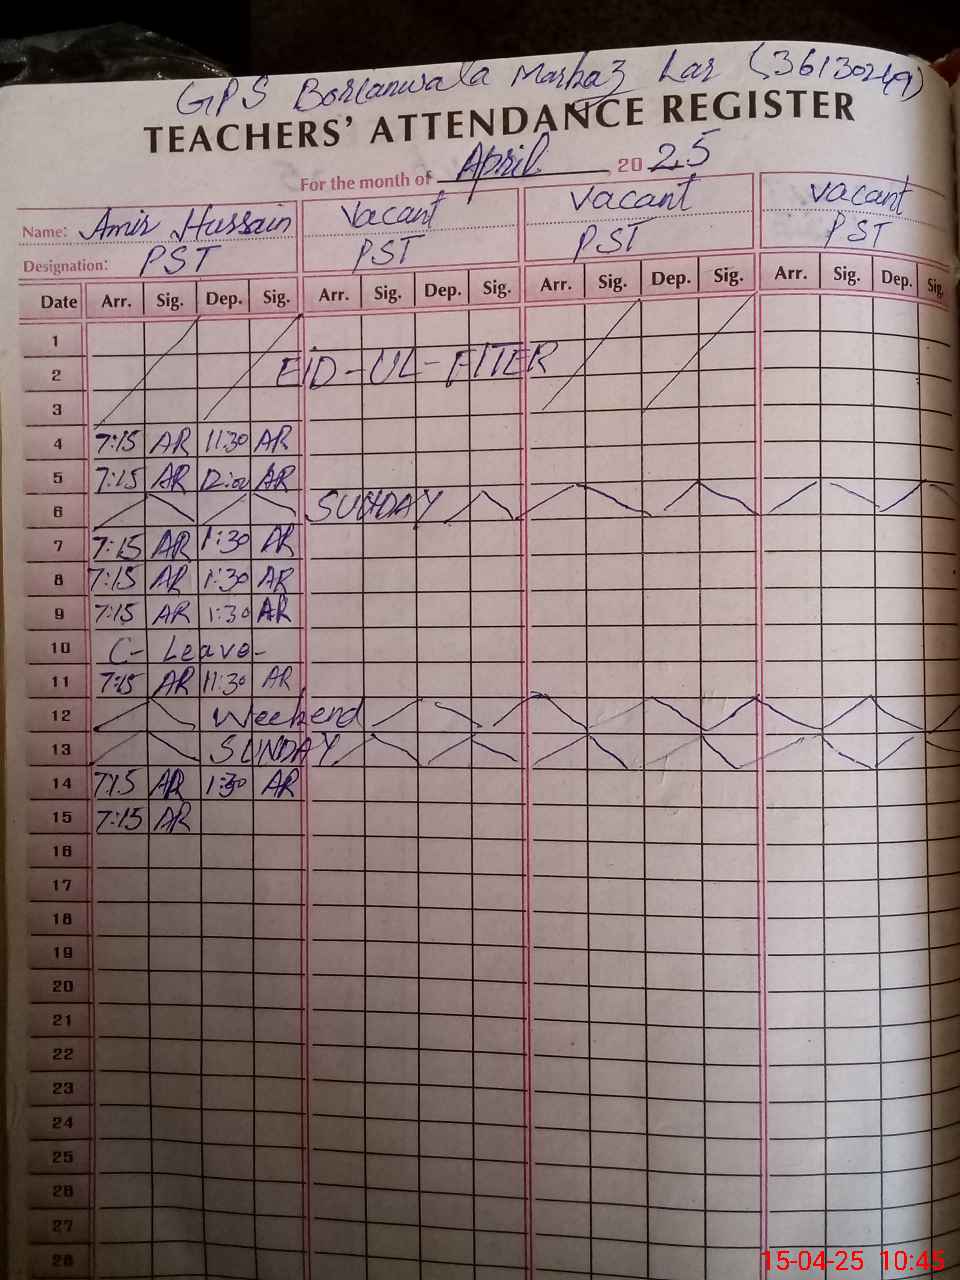 GPS Borianwala Markaz Lar (36130249)
TEACHERS' ATTENDANCE REGISTER
For the month of April, 2025
Name: Amir Hussain vacant vacant vacant
Designation: PST PST PST PST
Date Arr. Sig. Dep. Sig. Arr. Sig. Dep. Sig. Arr. Sig. Dep. Sig. Arr. Sig. Dep. Sig.
1
2 EID-UL-FITER
3
4 7:15 AR 11:30 AR
5 7:15 AR 12:00 AR
6 SUNDAY
7 7:15 AR 1:30 AR
8 7:15 AR 1:30 AR
9 7:15 AR 1:30 AR
10 C- Leave-
11 7:15 AR 11:30 AR
12 Weekend
13 SUNDAY
14 7:15 AR 1:30 AR
15 7:15 AR
16
17
18
19
20
21
22
23
24
25
26
27
28
15-04-25 10:45